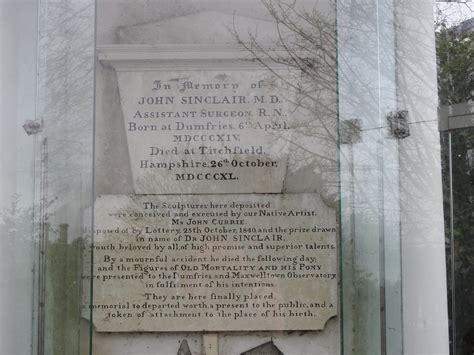 In Memory of
JOHN SINCLAIR, M.D.,
ASSISTANT SURGEON, R.N.,
Born at Dumfries, 6th April,
MDCCCXIV.
Died at Titchfield,
Hampshire, 26th October,
MDCCCXL.
The Sculptures here deposited
were conceived and executed by our Native Artist,
Mr JOHN CURRIE,
disposed of by Lottery, 25th October, 1840 and the prize drawn
in name of Dr JOHN SINCLAIR,
a youth beloved by all, of high promise and superior talents.
By a mournful accident, he died the following day,
and the Figures of OLD MORTALITY AND HIS PONY
were presented to the Dumfries and Maxwelltown Observatory,
in fulfilment of his intentions.
They are here finally placed,
a memorial to departed worth, a present to the public, and a
token of attachment to the place of his birth.